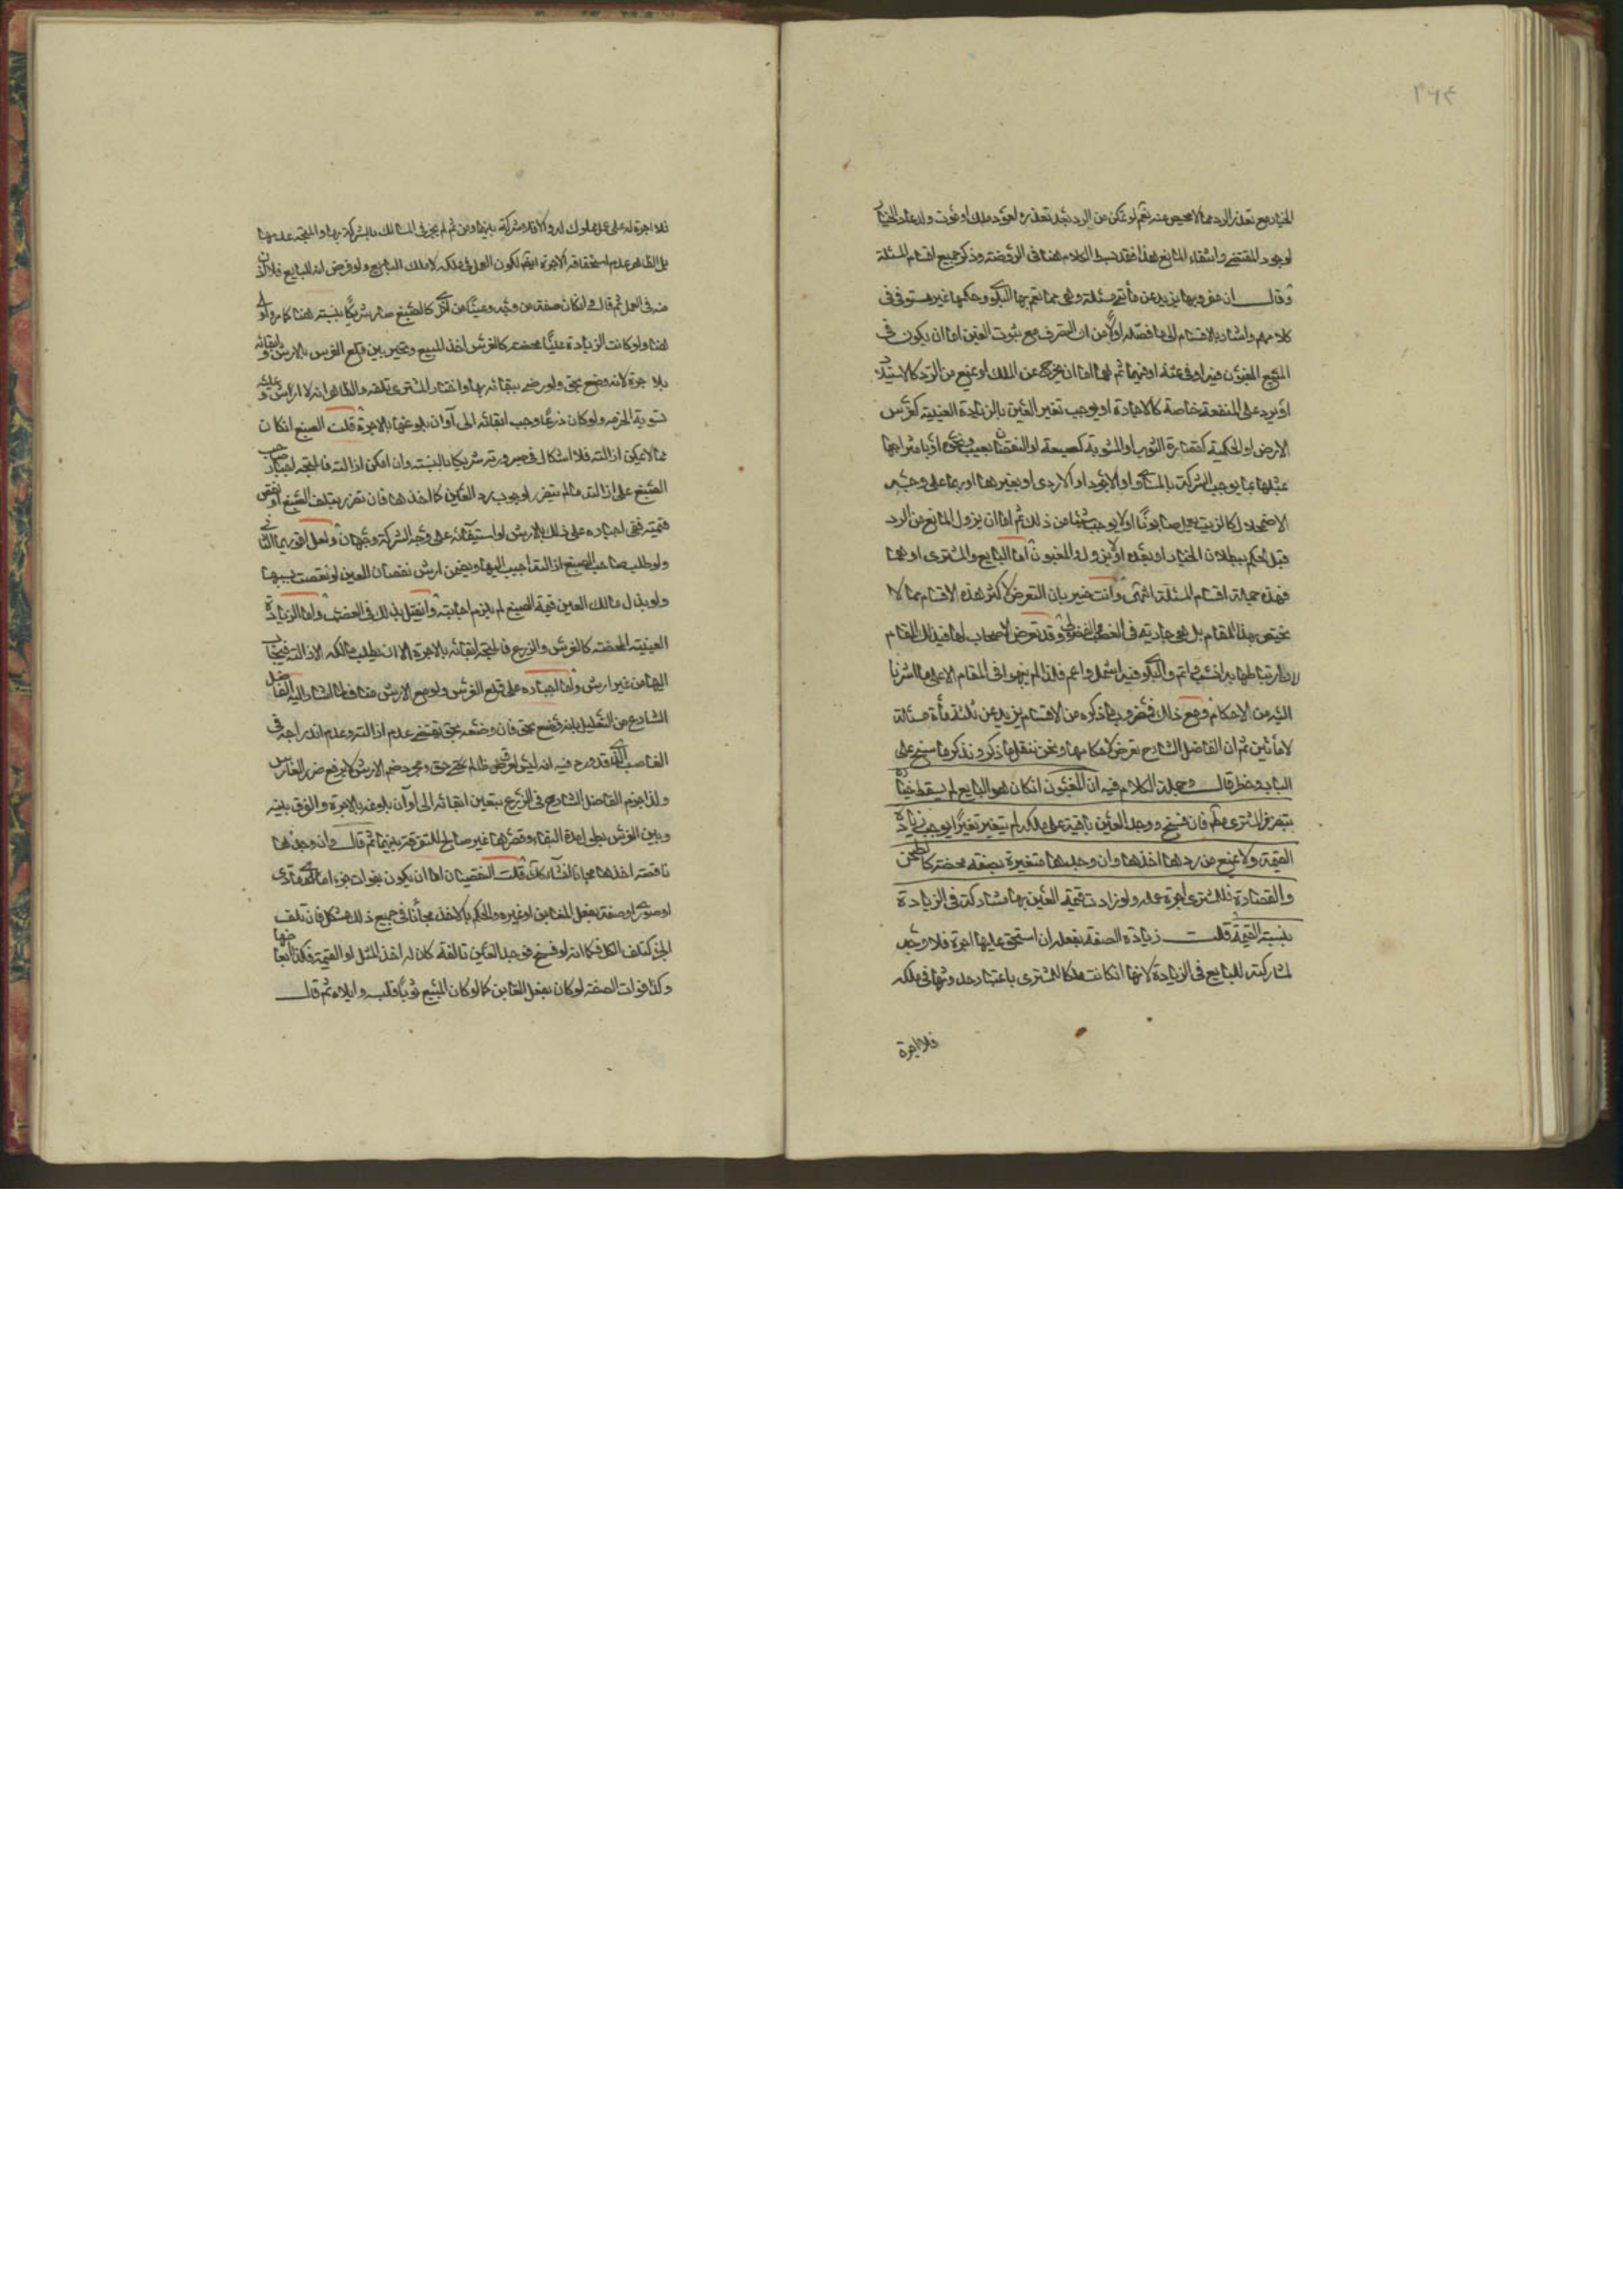 ٢٦٤
الخيار مع تعذر الرد مما لا محيص عنه نعم لو تمكن من الرد بعد تعذره لعود ملك او نحوه ولد عاد الخيار
لوجود المقتضي وانتفاء المانع هذا فقد بسط الكلام هنا في الروضة وذكر جميع اقسام المسئلة
وقال ان مضروبها يزيد عن مأتي مسئلة وهي مما تعم بها البلوى وحكمها غير مستوفى في
كلامهم واشار بالاقسام الى ما فصله اولا من ان التصرف مع ثبوت الغبن اما ان يكون في
المبيع المغبون فيه او في ثمنه او فيهما ثم اما ان يخرج عن الملك او يمنع من الرد كالاستيلاد
او يرد على المنفعة خاصة كالاجارة او يوجب تغير العين بالزيادة العينية كغرس
الارض او الحكمية كقصارة الثوب او المشوبة كصبغه او النقصان بعيب ونحوه او بامتزاجها
بمثلها بما يوجب الشركة بالمساوى او الاجود او الاردى او بغيرها او بهما على وجه
الاضمحلال كالزيت يعمل صابونا او لا يوجب شيئا من ذلك ثم اما ان يزول المانع من الرد
قبل الحكم ببطلان الخيار او بعده او لا يزول والمغبون اما البايع والمشترى او هما
فهذه جملة اقسام المسئلة انتهى وانت خبير بان التعرض لاكثر هذه الاقسام مما لا
يختص بهذا المقام بل هي جارية في الغصب وقد تعرض الاصحاب لها في ذلك المقام
لان ارتباطها به انسب واتم والبلوى فيه اشمل واعم فلذا لم ينبهوا في المقام الا على ما اشرنا
اليه من الاحكام ومع ذلك فمضروب ما ذكره من الاقسام يزيد عن ثلثمأة مسئلة
لا مأتين ثم ان الفاضل الشارح تعرض لاحكامها ونحن ننقل ما ذكر ونذكر ما سنح على
البال وخطر قال وجملة الكلام فيه ان المغبون ان كان هو البايع لم يسقط خياره
بتصرف المشترى مطلقا فان فسخ ووجد العين باقية على ملكه لم يتغير تغيرا يوجب زيادة
القيمة ولا يمنع من ردها اخذها وان وجدها متغيرة بصفة محضة كالطحن
والقصارة فللمشترى اجرة عمله ولو زادت قيمة العين بها شاركه في الزيادة
بنسبة القيمة قلت زيادة الصفة بفعله ان استحق عليها اجرة فلا وجه
لمشاركته للبايع في الزيادة لانها ان كانت ملكا للمشترى باعتبار حدوثها في ملكه
فلا اجرة
فلا اجرة له على عمل مملوك له والا فلا شركة بينهما ومن ثم لم يجز في المسالك بالشركة بها والمتجه عدمها
بل الظاهر عدم استحقاقه الاجرة ايضا لكون العمل في ملكه لا ملك البايع ولو فرض انه للبايع فلا اذن
منه في العمل ثم قال وان كان صفة من وجه وعينا من اخر كالصبغ صار شريكا بنسبته هنا كما مر واولى
هنا ولو كانت الزيادة عينا محضة كالغرس اخذ المبيع وتخير بين قلع الغرس بالارش وابقائه
بالاجرة لانه وضع بحق ولو رضي ببقائه بها واختار المشترى قلعه والظاهر انه لا ارش وعليه
تسوية الحفر ولو كان زرعا وجب ابقائه الى اوان بلوغه بالاجرة قلت الصبغ ان كان
مما لا يمكن ازالته فلا اشكال في صيرورته شريكا بالنسبة وان امكن ازالته فالمتجه اجبار صاحب
الصبغ على ازالته ما لم يتضرر لوجوب رد العين كما اخذها فان تضرر بتلف الصبغ او نقص
قيمته ففي اجباره على ذلك بالارش او استبقائه على وجه الشركة وجهان ولعل اقربهما الثاني
ولو طلب صاحب الصبغ ازالته اجيب اليها ويضمن ارش نقصان العين لو نقصت بسببها
ولو بذل مالك العين قيمة الصبغ لم يلزم اجابته وان قيل بذلك في الغصب واما الزيادة
العينية المحضة كالغرس والزرع فالمتجه ابقائه بالاجرة الا ان يطلب مالكه الازالة فيجاب
اليها من غير ارش واما اجباره على قلع الغرس ولو مع الارش فلما اشار اليه الفاضل
الشارح من التعليل بانه وضع بحق فان وضعه بحق يقتضي عدم ازالته وعدم اندراجه في
الغاصب الذى قد ورد فيه انه ليس لعرق ظالم حق ومجرد ضم الارش لا يرفع ضرر الغارس
ولذا جزم الفاضل الشارح في الزرع بتعين ابقائه الى اوان بلوغه بالاجرة والفرق بينه
وبين الغرس بطول مدة البقاء وقصرها غير صالح للتفرقة بينهما ثم قال وان وجدها
ناقصة اخذها مجانا كذلك قلت النقصان اما ان يكون بفوات جزء اما مادى
او صورى او صفة بفعل الغابن او غيره والحكم بالاخذ مجانا في جميع ذلك مشكل فان تلف
الجزء كتلف الكل فكما انه لو فسخ فوجد العين تالفة كان له اخذ المثل او القيمة فكذا ابعاضها
وكذا فوات الصفة لو كان بفعل الغابن كما لو كان المبيع ثوبا فلبسه وابلاه ثم قال